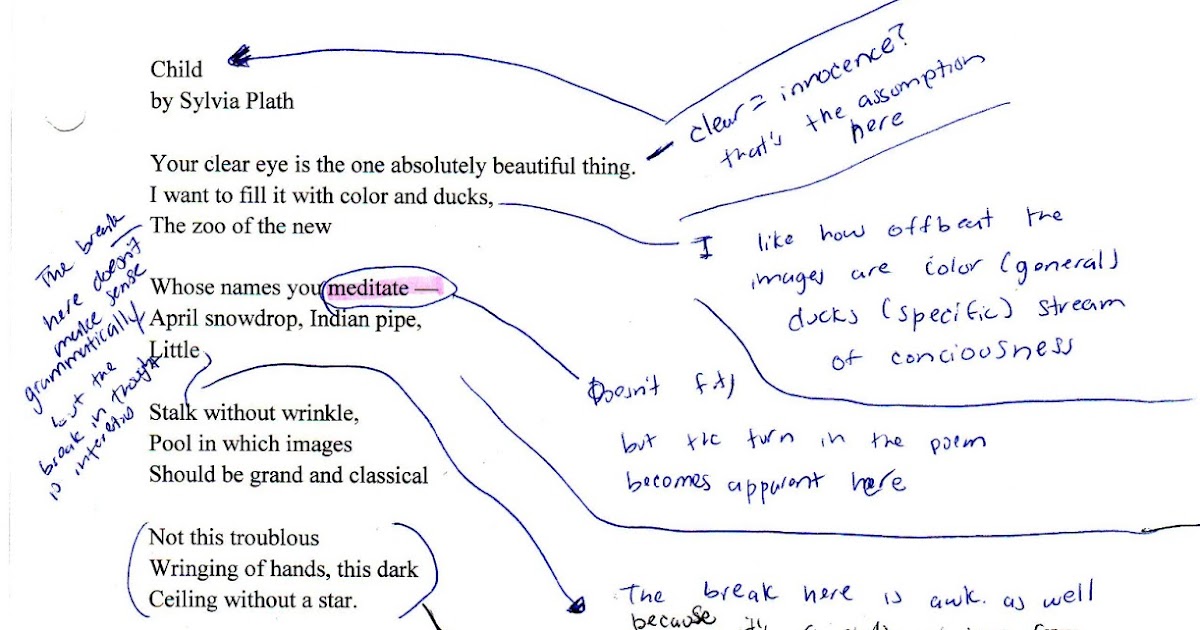 Child
by Sylvia Plath
Your clear eye is the one absolutely beautiful thing.
I want to fill it with color and ducks,
The zoo of the new
Whose names you meditate —
April snowdrop, Indian pipe,
Little
Stalk without wrinkle,
Pool in which images
Should be grand and classical
Not this troublous
Wringing of hands, this dark
Ceiling without a star.
clear = innocence?
that's the assumption
here
I like how offbeat the
images are color (general)
ducks (specific) stream
of conciousness
The break
here doesn't
make sense
grammatically
but the
break in thought
is interesting
Doesn't fit,
but the turn in the poem
becomes apparent here
The break here is awk. as well
because